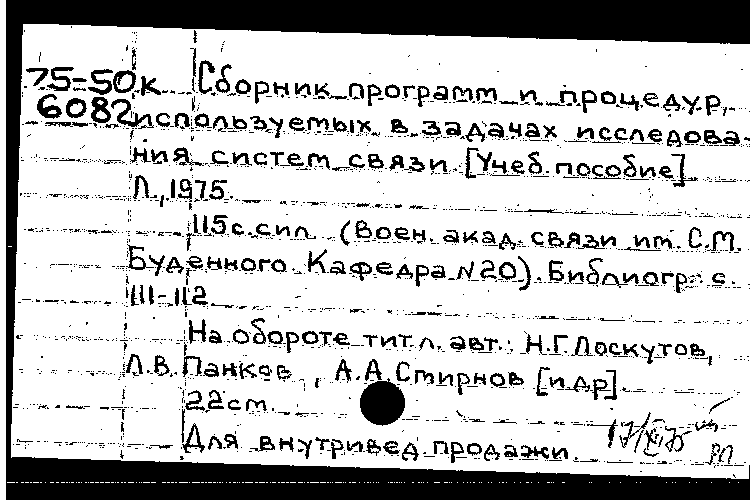 75-50к Сборник программ и процедур,
6082 используемых в задачах исследова-
ния систем связи. [Учеб. пособие]
Л., 1975.
115с. с ил. (Воен. акад. связи им. С.М.
Буденного. Кафедра N20). Библиогр: с.
111-112
На обороте тит. л. авт.: Н.Г. Лоскутов,
Л.В. Панков, А.А. Смирнов [и др].
22 см.
Для внутривед. продажи. 17/XI 75